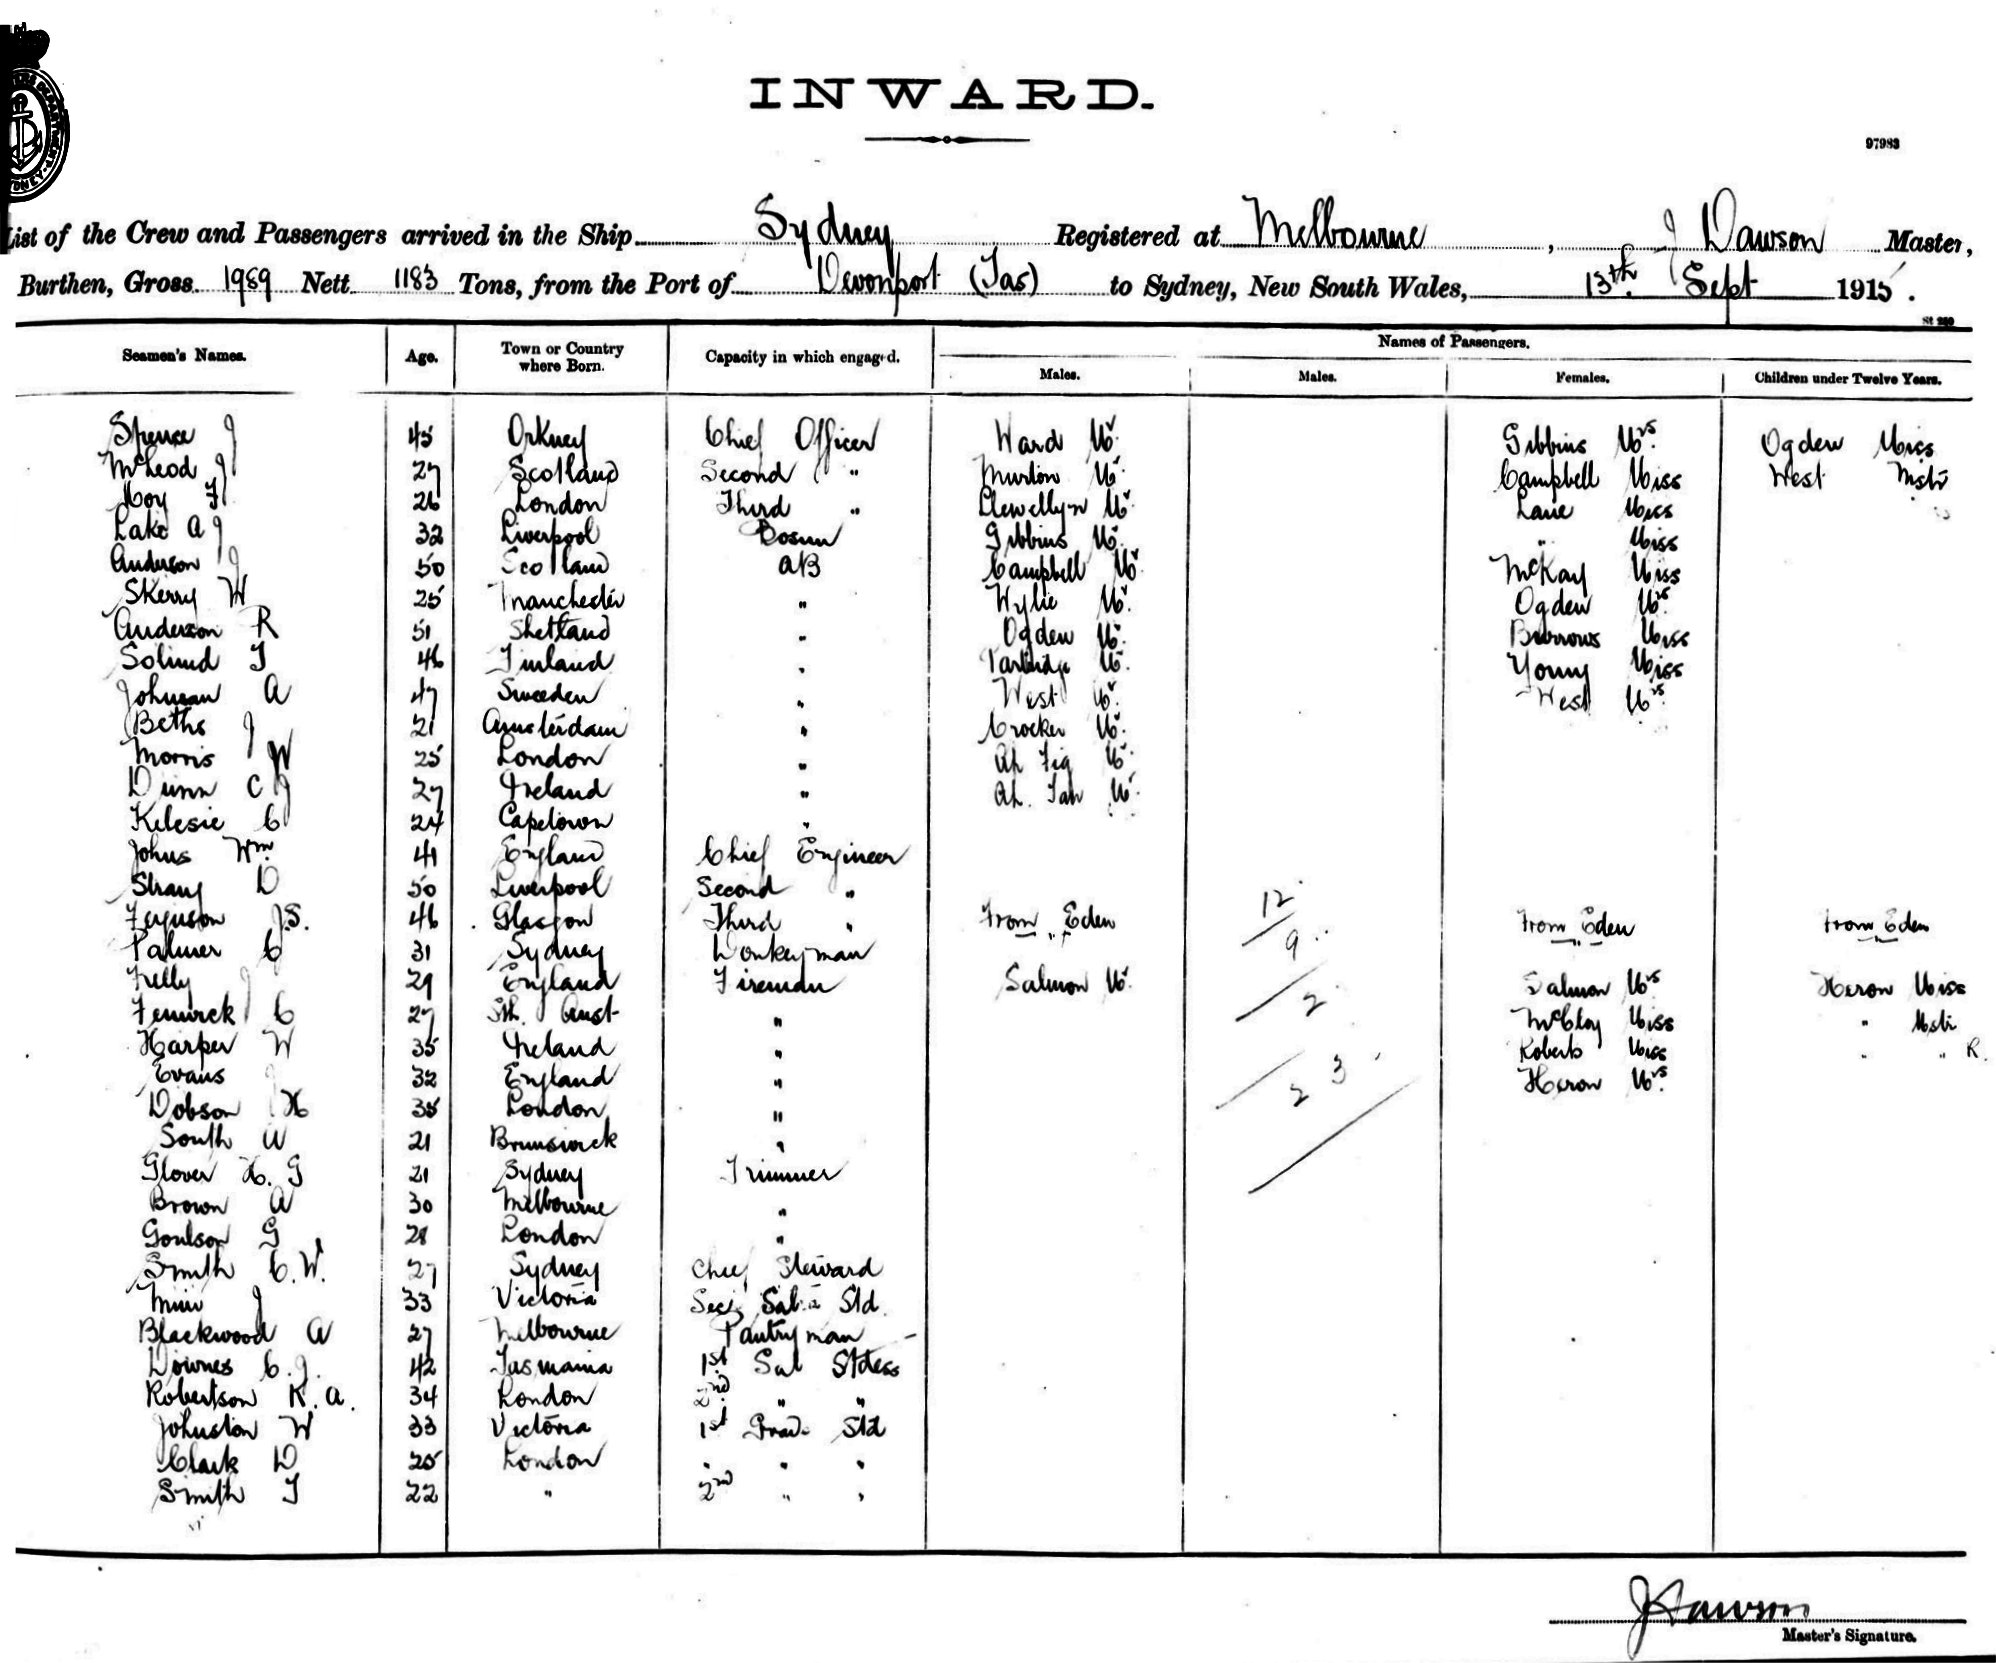 INWARD.
97983
List of the Crew and Passengers arrived in the Ship Sydney Registered at Melbourne, J Dawson Master,
Burthen, Gross 1989 Nett 1183 Tons, from the Port of Devonport (Tas) to Sydney, New South Wales, 13th Sept 1915.
St 260
Names of Passengers.
Seamen's Names. Age. Town or Country where Born. Capacity in which engaged. Males. Males. Females. Children under Twelve Years.
Spence J 45 Orkney Chief Officer Ward Mr Gibbins Mrs Ogden Miss
McLeod J 27 Scotland Second " Murton Mr Campbell Miss West Mstr
Hoy F 26 London Third " Llewellyn Mr Lane Miss
Lake A J 32 Liverpool Bosun Gibbins Mr " Miss
Anderson J 50 Scotland AB Campbell Mr McKay Miss
Skerry W 25 Manchester " Wylie Mr Ogden Mrs
Anderson R 51 Shetland " Ogden Mr Burrows Miss
Solund J 46 Finland " Partridge Mr Young Miss
Johnson A 47 Sweeden " West Mr West Mrs
Beths J 21 Amsterdam " Crocker Mr
Morris W 25 London " Ah Fig Mr
Dunn C J 27 Ireland " Ah. Tah Mr
Kelesie C 24 Capetown "
Johns Wm 41 England Chief Engineer
Strang D 50 Liverpool Second " 12
Ferguson J.S. 46 Glasgow Third " From Eden From Eden From Eden
Palmer C 31 Sydney Donkeyman 9
Felly J 29 England Fireman Salmon Mr 2 Salmon Mrs Heron Miss
Fenwick C 27 Sth. Aust " McCloy Miss " Mstr
Harper W 35 Ireland " Roberts Miss " " R.
Evans J 32 England " 23 Heron Mrs
Dobson H 35 London "
South A 21 Brunswick "
Glover H. G 21 Sydney Trimmer
Brown A 30 Melbourne "
Goulson G 28 London "
Smith C. W. 27 Sydney Chief Steward
Muir J 33 Victoria Sec Saln Std.
Blackwood A 27 Melbourne Pantryman
Downes C. J. 42 Tasmania 1st Sal Stdess
Robertson K. A. 34 London 2nd " "
Johnston W 33 Victoria 1st Grade Std
Clark D 25 London " " "
Smith J 22 " 2nd " "
J Dawson
Master's Signature.